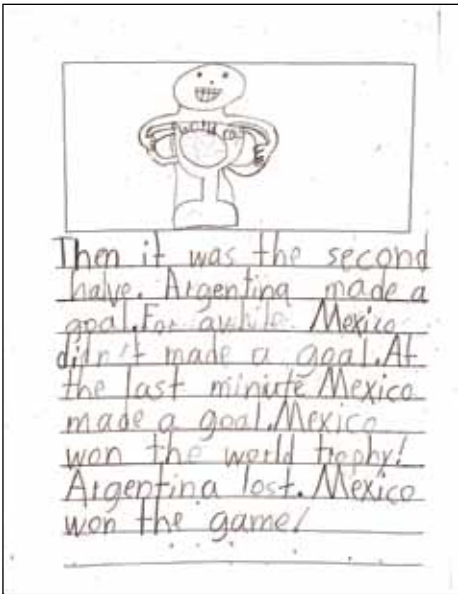 World Cup
Then it was the second
halve. Argentina made a
goal. For awhile Mexico
didn't made a goal. At
the last minute Mexico
made a goal. Mexico
won the world trophy!
Argentina lost. Mexico
won the game!